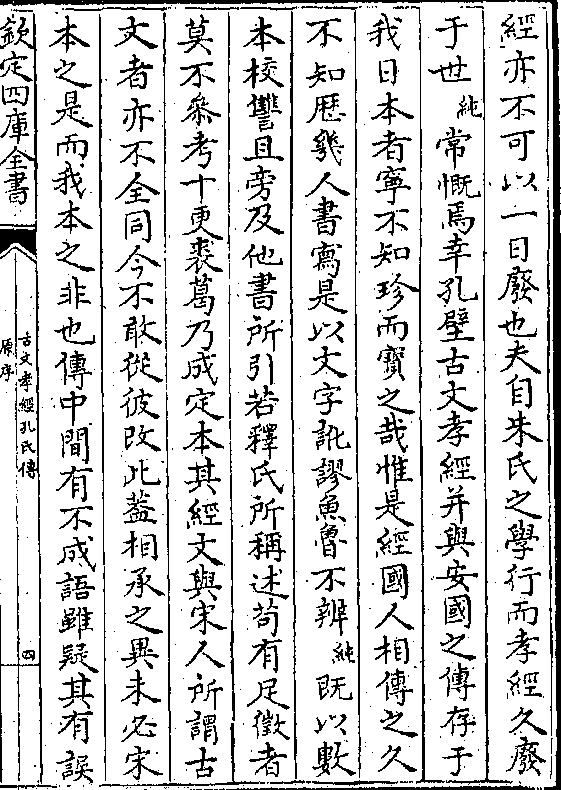 經亦不可以一日廢也夫自朱氏之學行而孝經久廢
于世純常慨焉幸孔壁古文孝經并與安國之傳存于
我日本者寧不知珍而寶之哉惟是經國人相傳之久
不知歴幾人書寫是以文字訛謬魚魯不辨純既以數
本校讐且旁及他書所引若釋氏所稱述苟有足徵者
莫不叅考十更裘葛乃成定本其經文與宋人所謂古
文者亦不全同今不敢從彼改此蓋相承之異未必宋
本之是而我本之非也傳中間有不成語雖疑其有誤
欽定四庫全書
古文孝經孔氏傳
原序
四